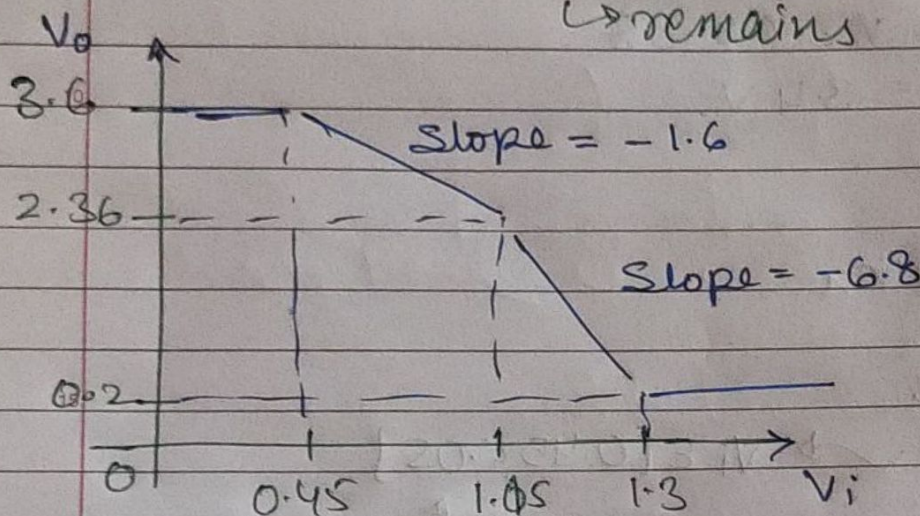 ↳ remains
Vo
3.6
Slope = -1.6
2.36
Slope = -6.8
0.2
0
0.45 1.05 1.3 Vi